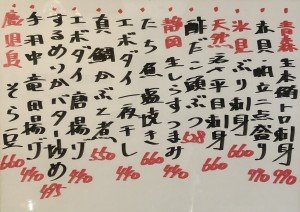 青森 生本鮪トロ刺身 990
赤貝・帆立二点盛り 990
氷見 ぶり刺身
天然 平目刺身
酢だこ
静岡 生しらすつまみ 660
たち魚塩焼き
エボダイ一夜干し 440
真鯛かぶと煮 550
エボダイ唐揚げ 440
するめいかバター炒め 495
手羽中竜田揚げ 440
鹿児島 そら豆 660